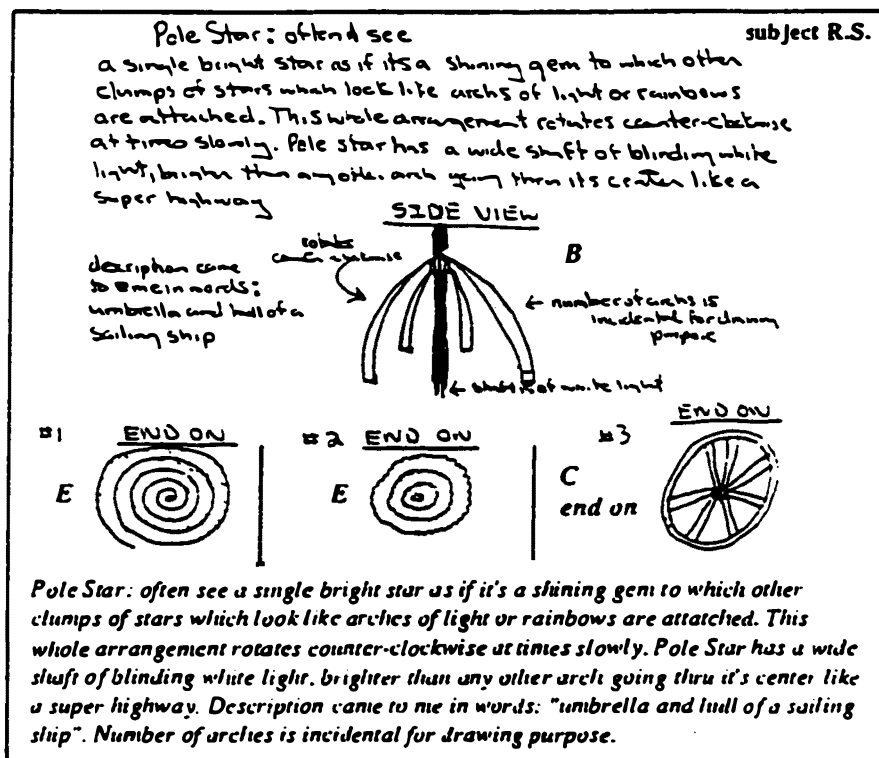 Pole Star: oftend see
subject R.S.
a single bright star as if its a shining gem to which other
clumps of stars which look like archs of light or rainbows
are attached. This whole arrangement rotates counter-clockwise
at times slowly. Pole star has a wide shaft of blinding white
light, brighter than any other arch going thru its center like a
super highway
SIDE VIEW
rotates
counter clockwise
B
description came
to me in words:
umbrella and hull of a
sailing ship
← number of archs is
incidental for drawing
purpose
← shaft of white light
#1 END ON
#2 END ON
#3 END ON
E
E
C
end on
Pole Star: often see a single bright star as if it's a shining gem to which other
clumps of stars which look like arches of light or rainbows are attatched. This
whole arrangement rotates counter-clockwise at times slowly. Pole Star has a wide
shaft of blinding white light, brighter than any other arch going thru it's center like
a super highway. Description came to me in words: "umbrella and hull of a sailing
ship". Number of arches is incidental for drawing purpose.